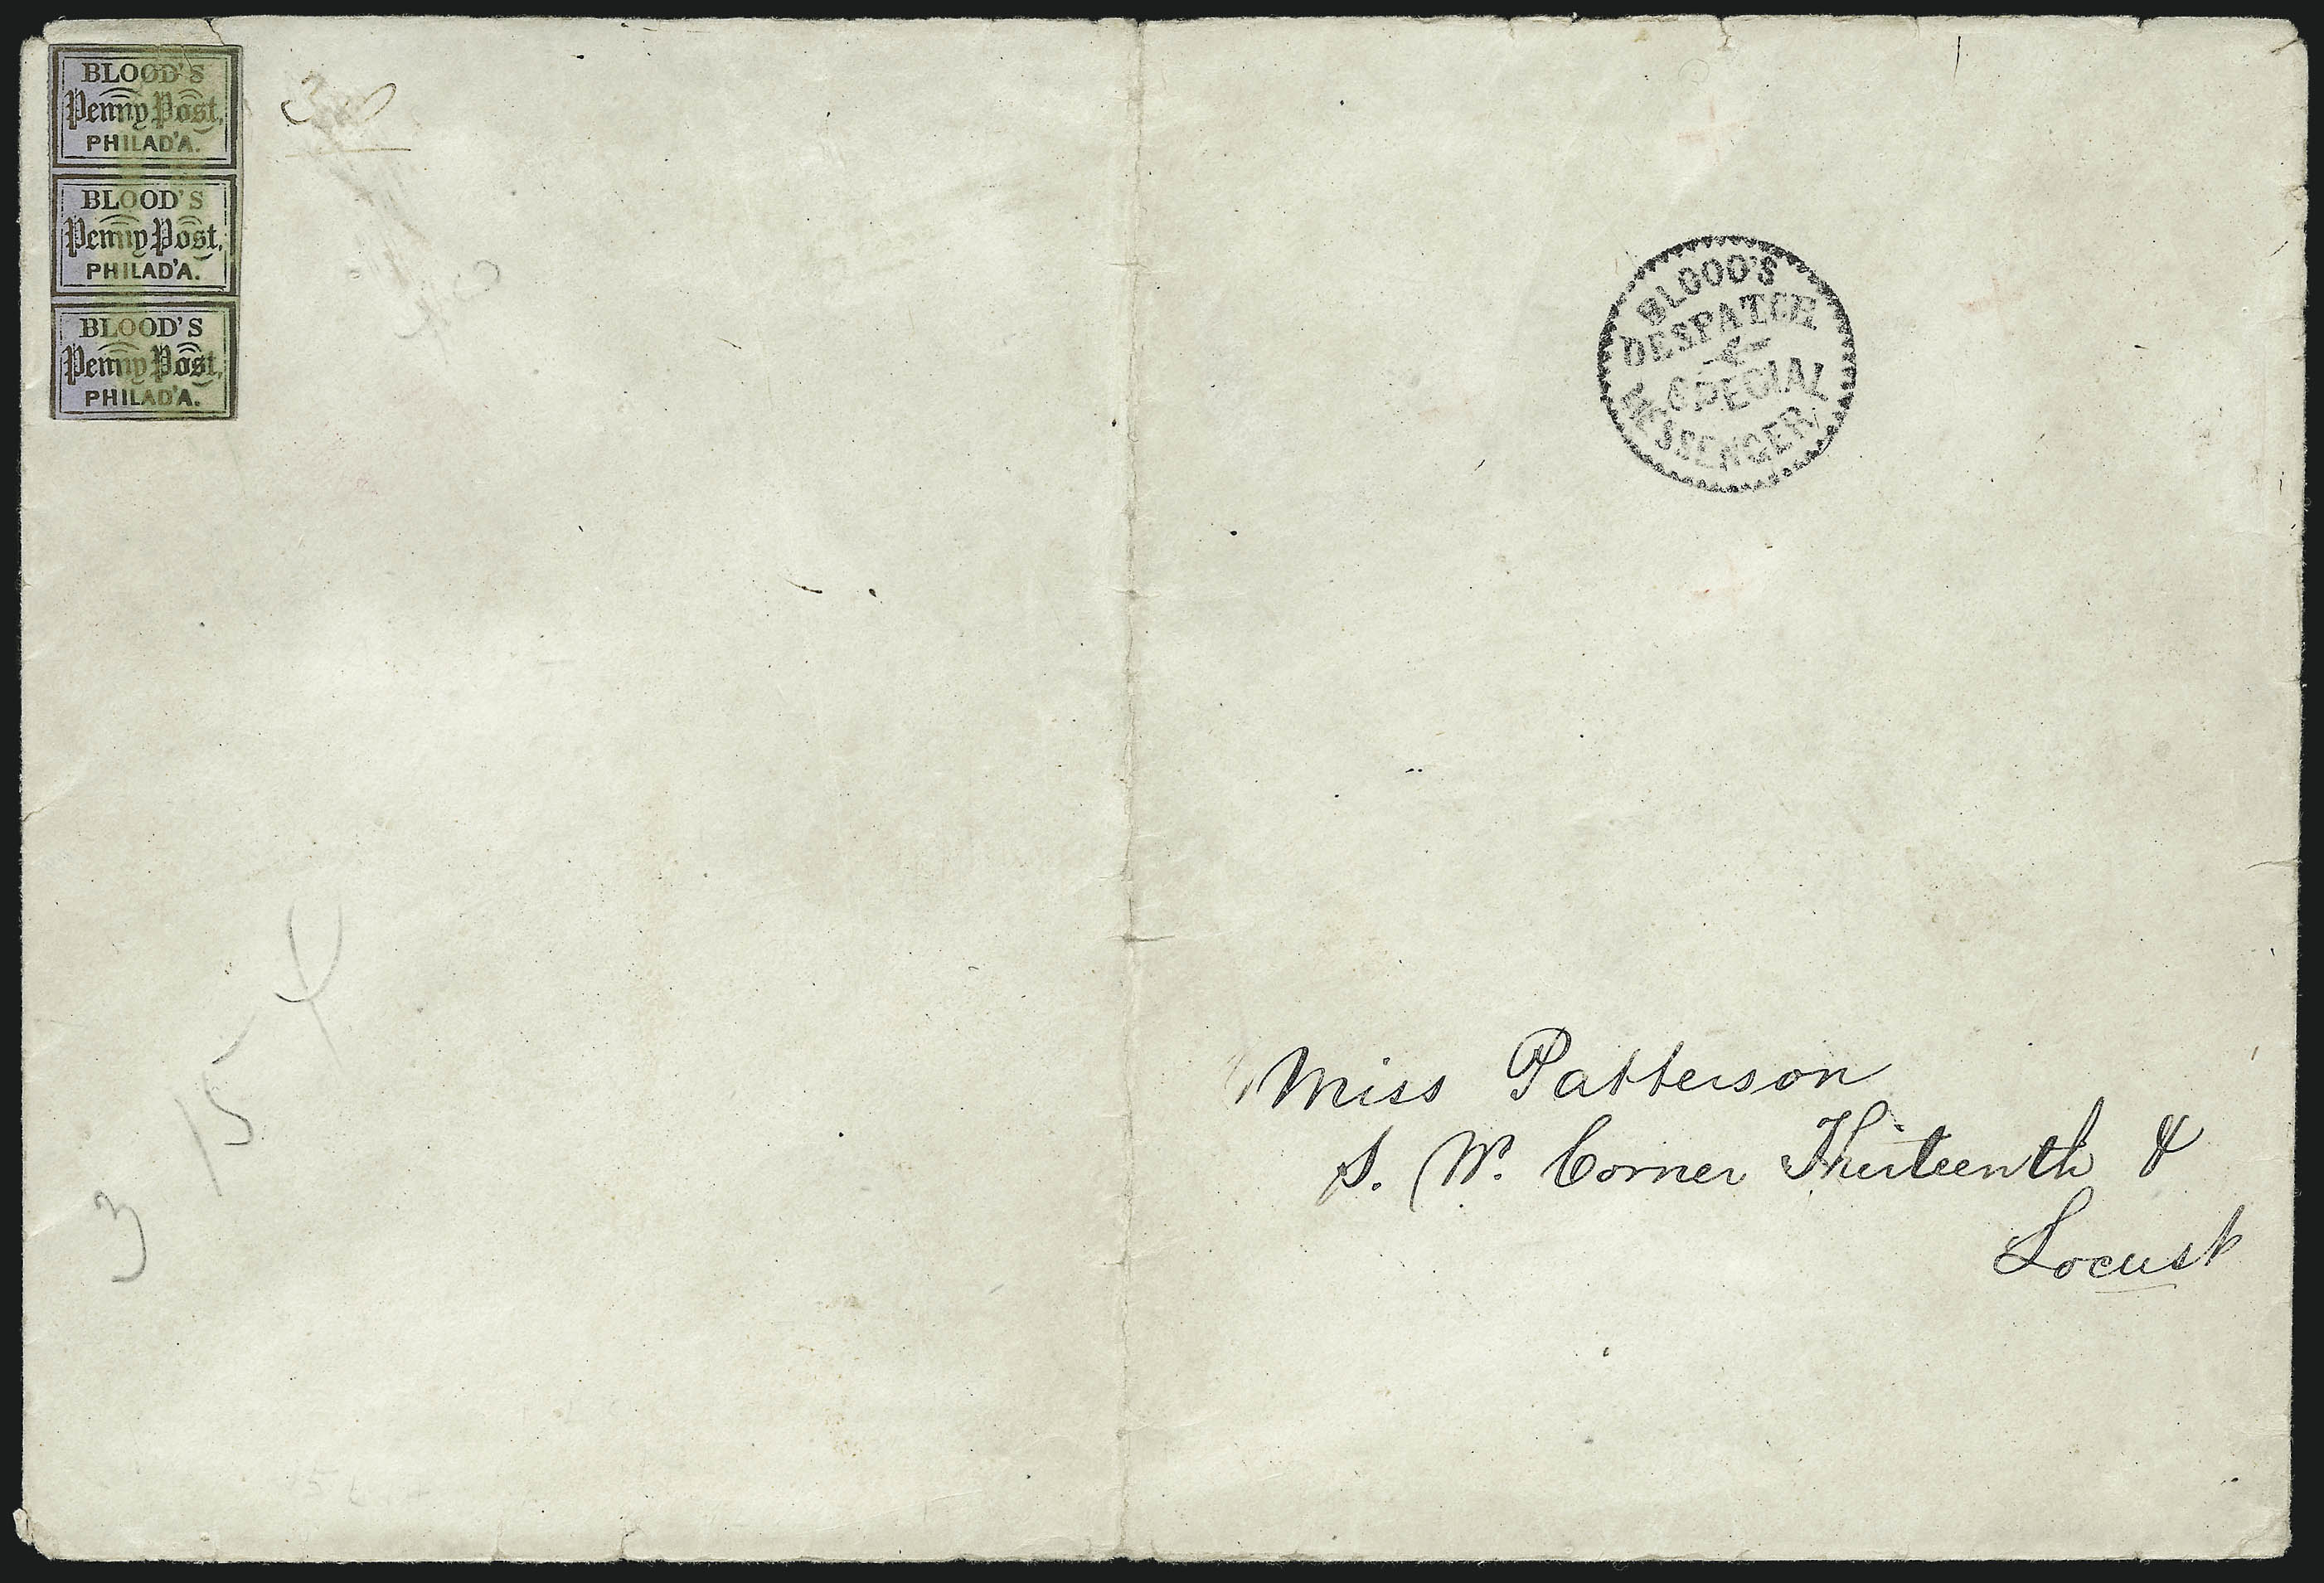 BLOOD'S
Penny Post,
PHILAD'A.
BLOOD'S
Penny Post,
PHILAD'A.
BLOOD'S
Penny Post,
PHILAD'A.
BLOOD'S
DESPATCH
&
SPECIAL
MESSENGER
Miss Patterson
S. W. Corner Thirteenth &
Locust
15
3